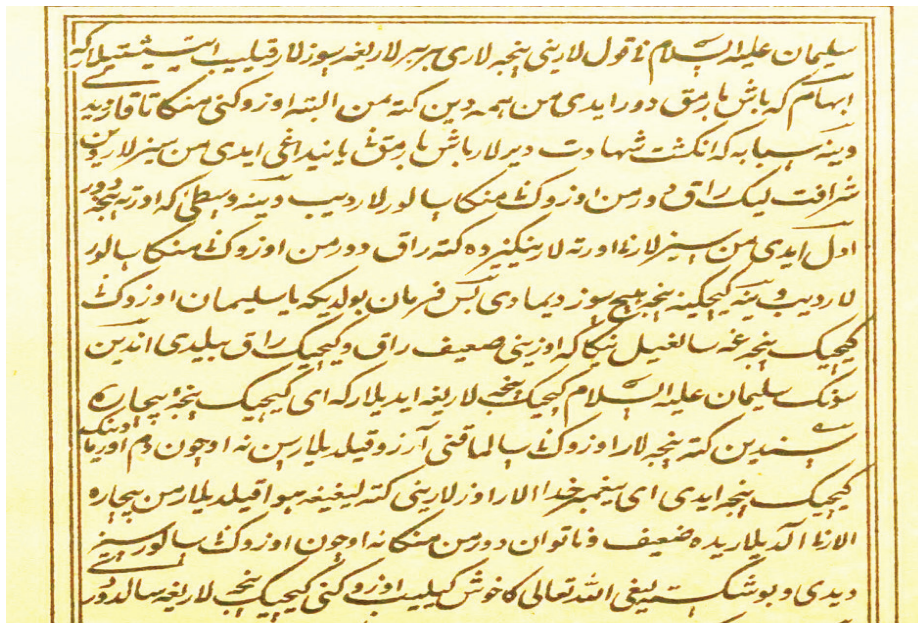 سلیمان علیه السلام نا قول لارینی پنجه لاری بیر بیر لاریغه سوز لار قیلیب ایتیشتیلار که
ابهام که باش بارمق دور ایدی من همه دین کته من البته اوزوکنی منکا تاقار دید
وینه سبابه که انکشت شهادت دیر لار باش بارمق نا یانیداغی ایدی من سیز لار دین
شرافت لیک راق دورمن اوزوک نا منکا سالور لار دیب وینه وسطی که اورته پنجه دور
اول ایدی من سیز لار نا اورته لارینکیزده کته راق دورمن اوزوک نا منکا سالور
لار دیب وینه کیچیکینه پنجه هیچ سوز دیمادی بس فرمان بولدیکه یا سلیمان اوزوک نا
کیچیک پنجه غه سالغیل نیکا که اوزینی ضعیف راق و کیچیک راق بیلدی اندین
سونک سلیمان علیه السلام کیچیک پنجه لاریغه ایدیلار که ای کیچیک پنجهٔ بیچاره
شندین کته پنجه لار اوزوک نا سالماقنی آرزو قیلدیلار سن نه اوچون دم اورمادینک
کیچیک پنجه ایدی ای پیغمبر خدا الار اوز لارینی کته لیغیغه هوا قیلدیلار من بیچاره
الار نا الدیلاریده ضعیف و ناتوان دورمن منکا نه اوچون اوزوک نا سالور سیز
دیدی و بو شکسته لیغی الله تعالی کا خوش کیلیب اوزوکنی کیچیک پنجه لاریغه سالدور